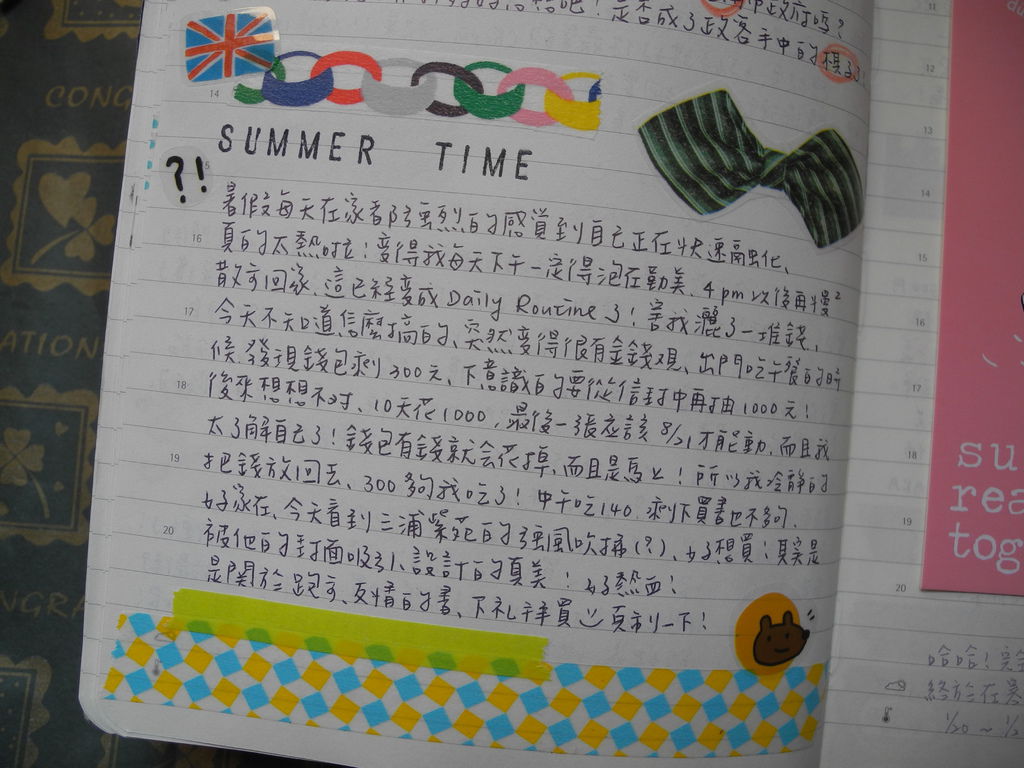 是否成了政客手中的棋子!
CONG
12
14
13
SUMMER TIME
?!
14
暑假每天在家都強烈的感覺到自己正在快速融化、
15
16
真的太熱啦!變得我每天下午一定得泡在勤美、4pm以後再慢²
散步回家、這已經變成Daily Routine了!害我灑了一堆錢,
16
17
今天不知道怎麼搞的、突然變得很有金錢觀、出門吃午餐的時
候、發現錢包剩300元、下意識的要從信封中再抽1000元!
17
18
後來想想不對、10天花1000,最後一張應該8/21才能動、而且我
太了解自己了!錢包有錢就会花掉、而且是馬上!所以我冷靜的
18
19
把錢放回去、300夠我吃了!中午吃140、剩下買書也不夠.
好家在、今天看到三浦紫苑的強風吹拂(?)、好想買!其實是
19
20
被他的封面吸引、設計的真美!好熱血!
是關於跑步、友情的書、下礼拜買 頁利一下!
20
ATION
NGRA
su
rea
tog
哈哈!完全
終於在暑
1/20~1/2